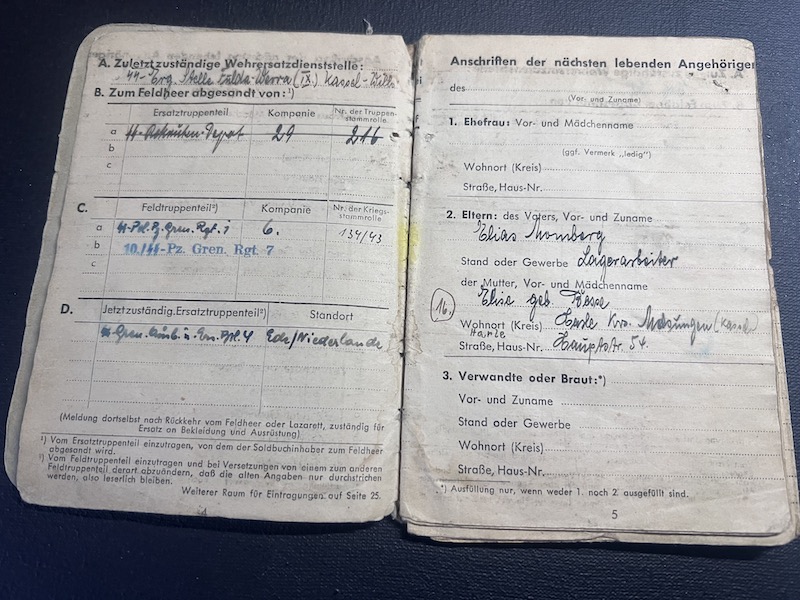 A. Zuletztzuständige Wehrersatzdienststelle:
SS-Erg. Stelle Fulda-Werra (IX.) Kassel-Wilh.
B. Zum Feldheer abgesandt von:¹)
Ersatztruppenteil Kompanie Nr. der Truppen-
stammrolle
a SS-Rekruten-Depot 29 216
b
c
C. Feldtruppenteil²) Kompanie Nr. der Kriegs-
stammrolle
a SS-Pol. Pz. Gren. Rgt. 1 6. 134/43
b 10./SS-Pz. Gren. Rgt. 7
c
D. Jetzt zuständig. Ersatztruppenteil²) Standort
SS Gren. Ausb. u. Ers. Btl. 4 Ede/Niederlande
(Meldung dortselbst nach Rückkehr vom Feldheer oder Lazarett, zuständig für
Ersatz an Bekleidung und Ausrüstung)
¹) Vom Ersatztruppenteil einzutragen, von dem der Soldbuchinhaber zum Feldheer
abgesandt wird.
²) Vom Feldtruppenteil einzutragen und bei Versetzungen von einem zum anderen
Feldtruppenteil derart abzuändern, daß die alten Angaben nur durchstrichen
werden, also leserlich bleiben.
Weiterer Raum für Eintragungen auf Seite 25.
4
Anschriften der nächsten lebenden Angehörigen
des
(Vor- und Zuname)
1. Ehefrau: Vor- und Mädchenname
(ggf. Vermerk „ledig")
Wohnort (Kreis)
Straße, Haus-Nr.
2. Eltern: des Vaters, Vor- und Zuname
Elias Momberg
Stand oder Gewerbe Lagerarbeiter
der Mutter, Vor- und Mädchenname
16. Elise geb. Hesse
Wohnort (Kreis) Harle Krs. Melsungen (Kassel)
Harle
Straße, Haus-Nr. Hauptstr. 54.
3. Verwandte oder Braut:*)
Vor- und Zuname
Stand oder Gewerbe
Wohnort (Kreis)
Straße, Haus-Nr.
*) Ausfüllung nur, wenn weder 1. noch 2. ausgefüllt sind.
5